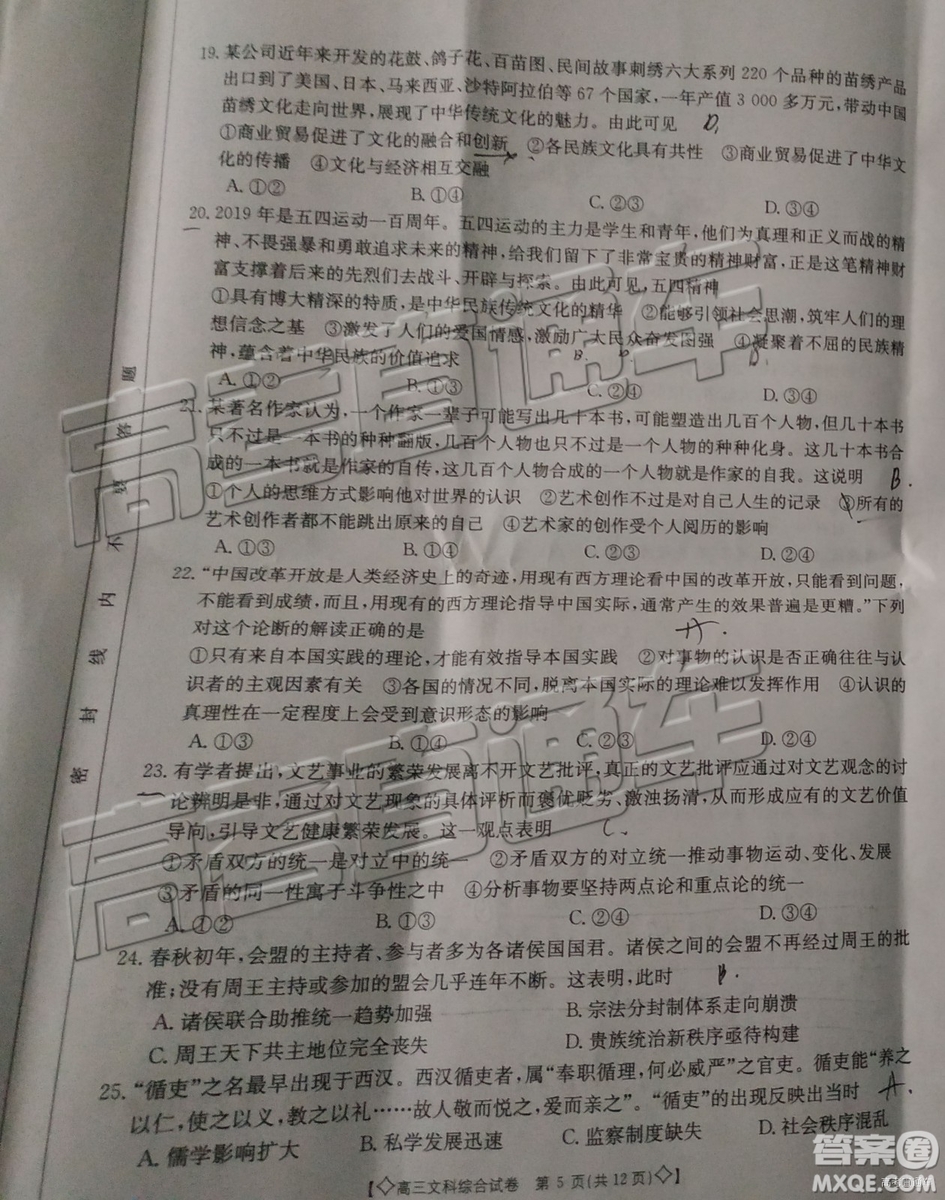 19. 某公司近年来开发的花鼓、鸽子花、百苗图、民间故事刺绣六大系列 220 个品种的苗绣产品
出口到了美国、日本、马来西亚、沙特阿拉伯等 67 个国家,一年产值 3 000 多万元,带动中国
苗绣文化走向世界,展现了中华传统文化的魅力。由此可见 D.
①商业贸易促进了文化的融合和创新 ②各民族文化具有共性 ③商业贸易促进了中华文
化的传播 ④文化与经济相互交融
A. ①② B. ①④ C. ②③ D. ③④
20. 2019 年是五四运动一百周年。五四运动的主力是学生和青年,他们为真理和正义而战的精
神、不畏强暴和勇敢追求未来的精神,给我们留下了非常宝贵的精神财富,正是这笔精神财
富支撑着后来的先烈们去战斗、开辟与探索。由此可见,五四精神
①具有博大精深的特质,是中华民族传统文化的精华 ②能够引领社会思潮,筑牢人们的理
想信念之基 ③激发了人们的爱国情感,激励广大民众奋发图强 ④凝聚着不屈的民族精
神,蕴含着中华民族的价值追求
A. ①② B. ①③ C. ②④ D. ③④
21. 某著名作家认为,一个作家一辈子可能写出几十本书,可能塑造出几百个人物,但几十本书
只不过是一本书的种种翻版,几百个人物只不过是一个人物的种种化身。这几十本书合
成的一本书就是作家的自传,这几百个人物合成的一个人物就是作家的自我。这说明 B.
①个人的思维方式影响他对世界的认识 ②艺术创作不过是对自己人生的记录 ③所有的
艺术创作者都不能跳出原来的自己 ④艺术家的创作受个人阅历的影响
A. ①③ B. ①④ C. ②③ D. ②④
22. “中国改革开放是人类经济史上的奇迹,用现有西方理论看中国的改革开放,只能看到问题,
不能看到成绩,而且,用现有的西方理论指导中国实际,通常产生的效果普遍是更糟。”下列
对这个论断的解读正确的是 A.
①只有来自本国实践的理论,才能有效指导本国实践 ②对事物的认识是否正确往往与认
识者的主观因素有关 ③各国的情况不同,脱离本国实际的理论难以发挥作用 ④认识的
真理性在一定程度上会受到意识形态的影响
A. ①③ B. ①④ C. ②③ D. ②④
23. 有学者提出,文艺事业的繁荣发展离不开文艺批评,真正的文艺批评应通过对文艺观念的讨
论辨明是非,通过对文艺现象的具体评析而褒优贬劣、激浊扬清,从而形成应有的文艺价值
导向,引导文艺健康繁荣发展。这一观点表明 C.
①矛盾双方的统一是对立中的统一 ②矛盾双方的对立统一推动事物运动、变化、发展
③矛盾的同一性寓于斗争性之中 ④分析事物要坚持两点论和重点论的统一
A. ①② B. ①③ C. ②④ D. ③④
24. 春秋初年,会盟的主持者、参与者多为各诸侯国国君。诸侯之间的会盟不再经过周王的批
准;没有周王主持或参与的盟会几乎连年不断。这表明,此时 B.
A. 诸侯联合助推统一趋势加强 B. 宗法分封制体系走向崩溃
C. 周王天下共主地位完全丧失 D. 贵族统治新秩序亟待构建
25. “循吏”之名最早出现于西汉。西汉循吏者,属“奉职循理,何必威严”之官吏。循吏能“养之
以仁,使之以义,教之以礼……故人敬而悦之,爱而亲之”。“循吏”的出现反映出当时 A.
A. 儒学影响扩大 B. 私学发展迅速 C. 监察制度缺失 D. 社会秩序混乱
【◇高三文科综合试卷 第 5 页(共 12 页)◇】
密封线内不要答题
高考直通车
高考直通车
答案圈
MXQE.COM